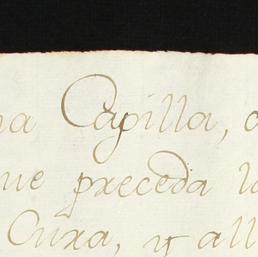 Capilla,
que preceda
Cura, y all